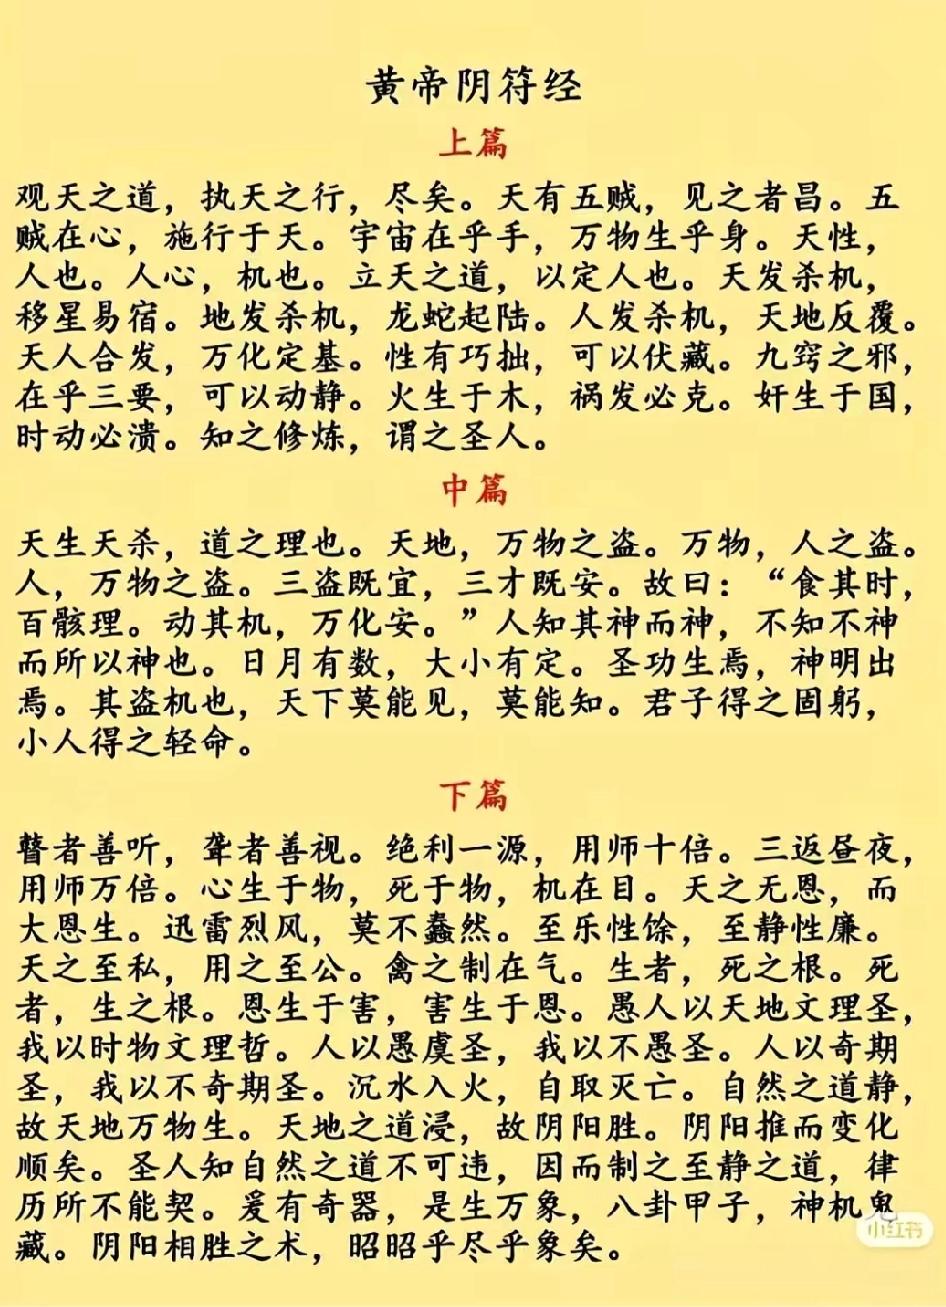 黄帝阴符经
上篇
观天之道，执天之行，尽矣。天有五贼，见之者昌。五
贼在心，施行于天。宇宙在乎手，万物生乎身。天性，
人也。人心，机也。立天之道，以定人也。天发杀机，
移星易宿。地发杀机，龙蛇起陆。人发杀机，天地反覆。
天人合发，万化定基。性有巧拙，可以伏藏。九窍之邪，
在乎三要，可以动静。火生于木，祸发必克。奸生于国，
时动必溃。知之修炼，谓之圣人。
中篇
天生天杀，道之理也。天地，万物之盗。万物，人之盗。
人，万物之盗。三盗既宜，三才既安。故曰：“食其时，
百骸理。动其机，万化安。”人知其神而神，不知不神
而所以神也。日月有数，大小有定。圣功生焉，神明出
焉。其盗机也，天下莫能见，莫能知。君子得之固躬，
小人得之轻命。
下篇
瞽者善听，聋者善视。绝利一源，用师十倍。三返昼夜，
用师万倍。心生于物，死于物，机在目。天之无恩，而
大恩生。迅雷烈风，莫不蠢然。至乐性馀，至静性廉。
天之至私，用之至公。禽之制在气。生者，死之根。死
者，生之根。恩生于害，害生于恩。愚人以天地文理圣，
我以时物文理哲。人以愚虞圣，我以不愚圣。人以奇期
圣，我以不奇期圣。沉水入火，自取灭亡。自然之道静，
故天地万物生。天地之道浸，故阴阳胜。阴阳推而变化
顺矣。圣人知自然之道不可违，因而制之至静之道，律
历所不能契。爰有奇器，是生万象，八卦甲子，神机鬼
藏。阴阳相胜之术，昭昭乎尽乎象矣。
小红书